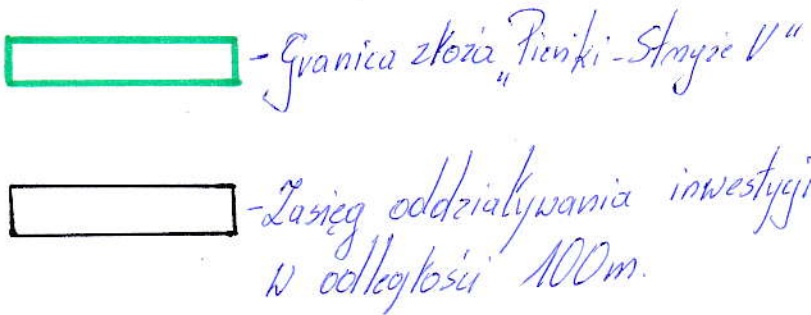 - Granica złoża "Pieńki-Stryże V"
- Zasięg oddziaływania inwestycji
w odległości 100m.